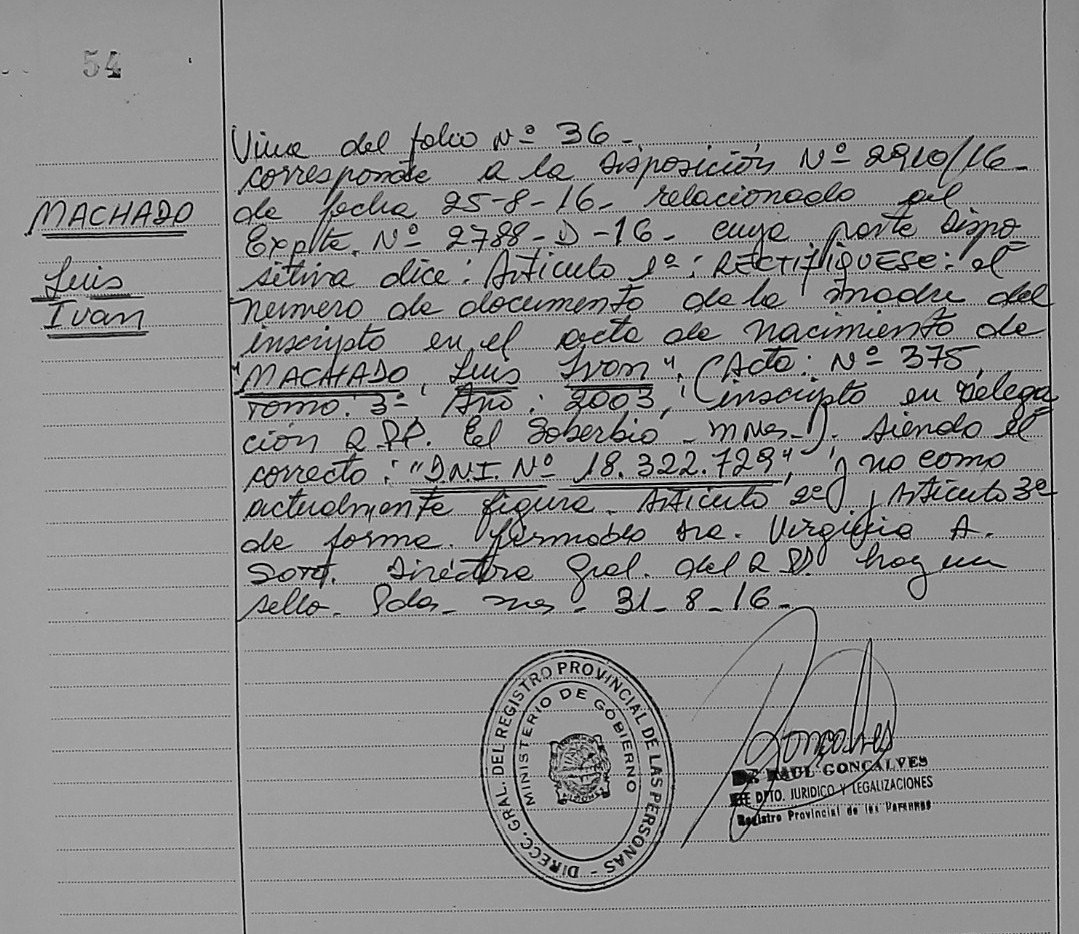 54
MACHADO
Luis
Ivan
Viene del folio Nº 36 -
corresponde a la Disposición Nº 2910/16-
de fecha 25-8-16- relacionado al
Expte. Nº 2788-D-16- cuya parte dispo
sitiva dice: Artículo 1º: RECTIFIQUESE: el
número de documento de la madre del
inscripto en el acta de nacimiento de
"MACHADO, Luis Ivan". (Acta: Nº 375,
Tomo: 3º, Año: 2003, inscripto en Delega
ción R.PP. El Soberbio - Mnes-). Siendo el
correcto: "DNI Nº 18.322.729", y no como
actualmente figura. Artículo 2º y Artículo 3º
de forma. Firmado Dra. Virginia A.
Directora Gral. del R.PP. hay un
sello. Pdas- Mnes - 31-8-16-
DIRECC. GRAL. DEL REGISTRO PROVINCIAL DE LAS PERSONAS -
MINISTERIO DE GOBIERNO
Goncalves
Dr. RAUL GONCALVES
JEFE DPTO. JURIDICO Y LEGALIZACIONES
Registro Provincial de las Personas